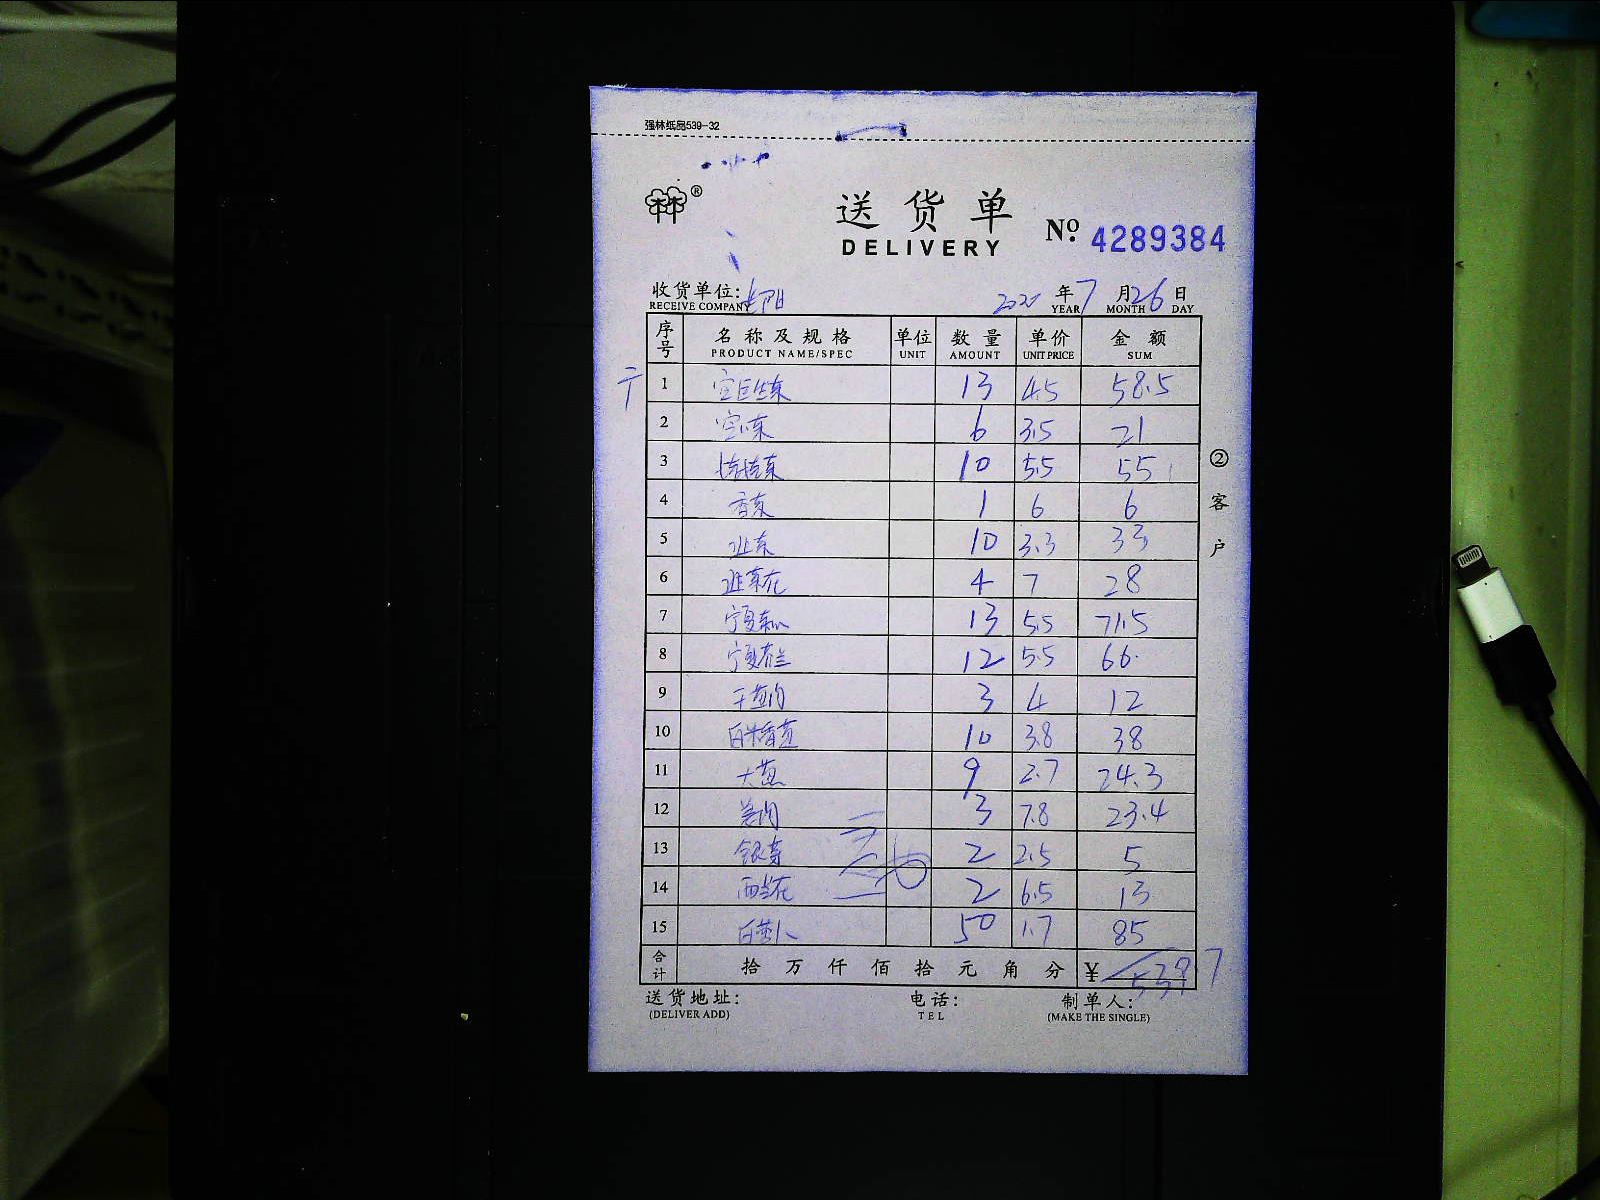 强林纸品539-32
®
送货单
DELIVERY
No. 4289384
收货单位:
RECEIVE COMPANY
年 7 月 26 日
YEAR MONTH DAY
序号 名称及规格 单位 数量 单价 金额
PRODUCT NAME/SPEC UNIT AMOUNT UNIT PRICE SUM
1 13 4.5 58.5
2 6 3.5 21
3 10 5.5 55
4 香菜 1 6 6
5 10 3.3 33
6 4 7 28
7 宁夏菜心 13 5.5 71.5
8 宁夏芥兰 12 5.5 66
9 干葱肉 3 4 12
10 10 3.8 38
11 大葱 9 2.7 24.3
12 姜肉 3 7.8 23.4
13 银芽 2 2.5 5
14 西兰花 2 6.5 13
15 50 1.7 85
合计 拾 万 仟 佰 拾 元 角 分 ¥ 539.7
② 客户
送货地址: 电话: 制单人:
(DELIVER ADD) TEL (MAKE THE SINGLE)